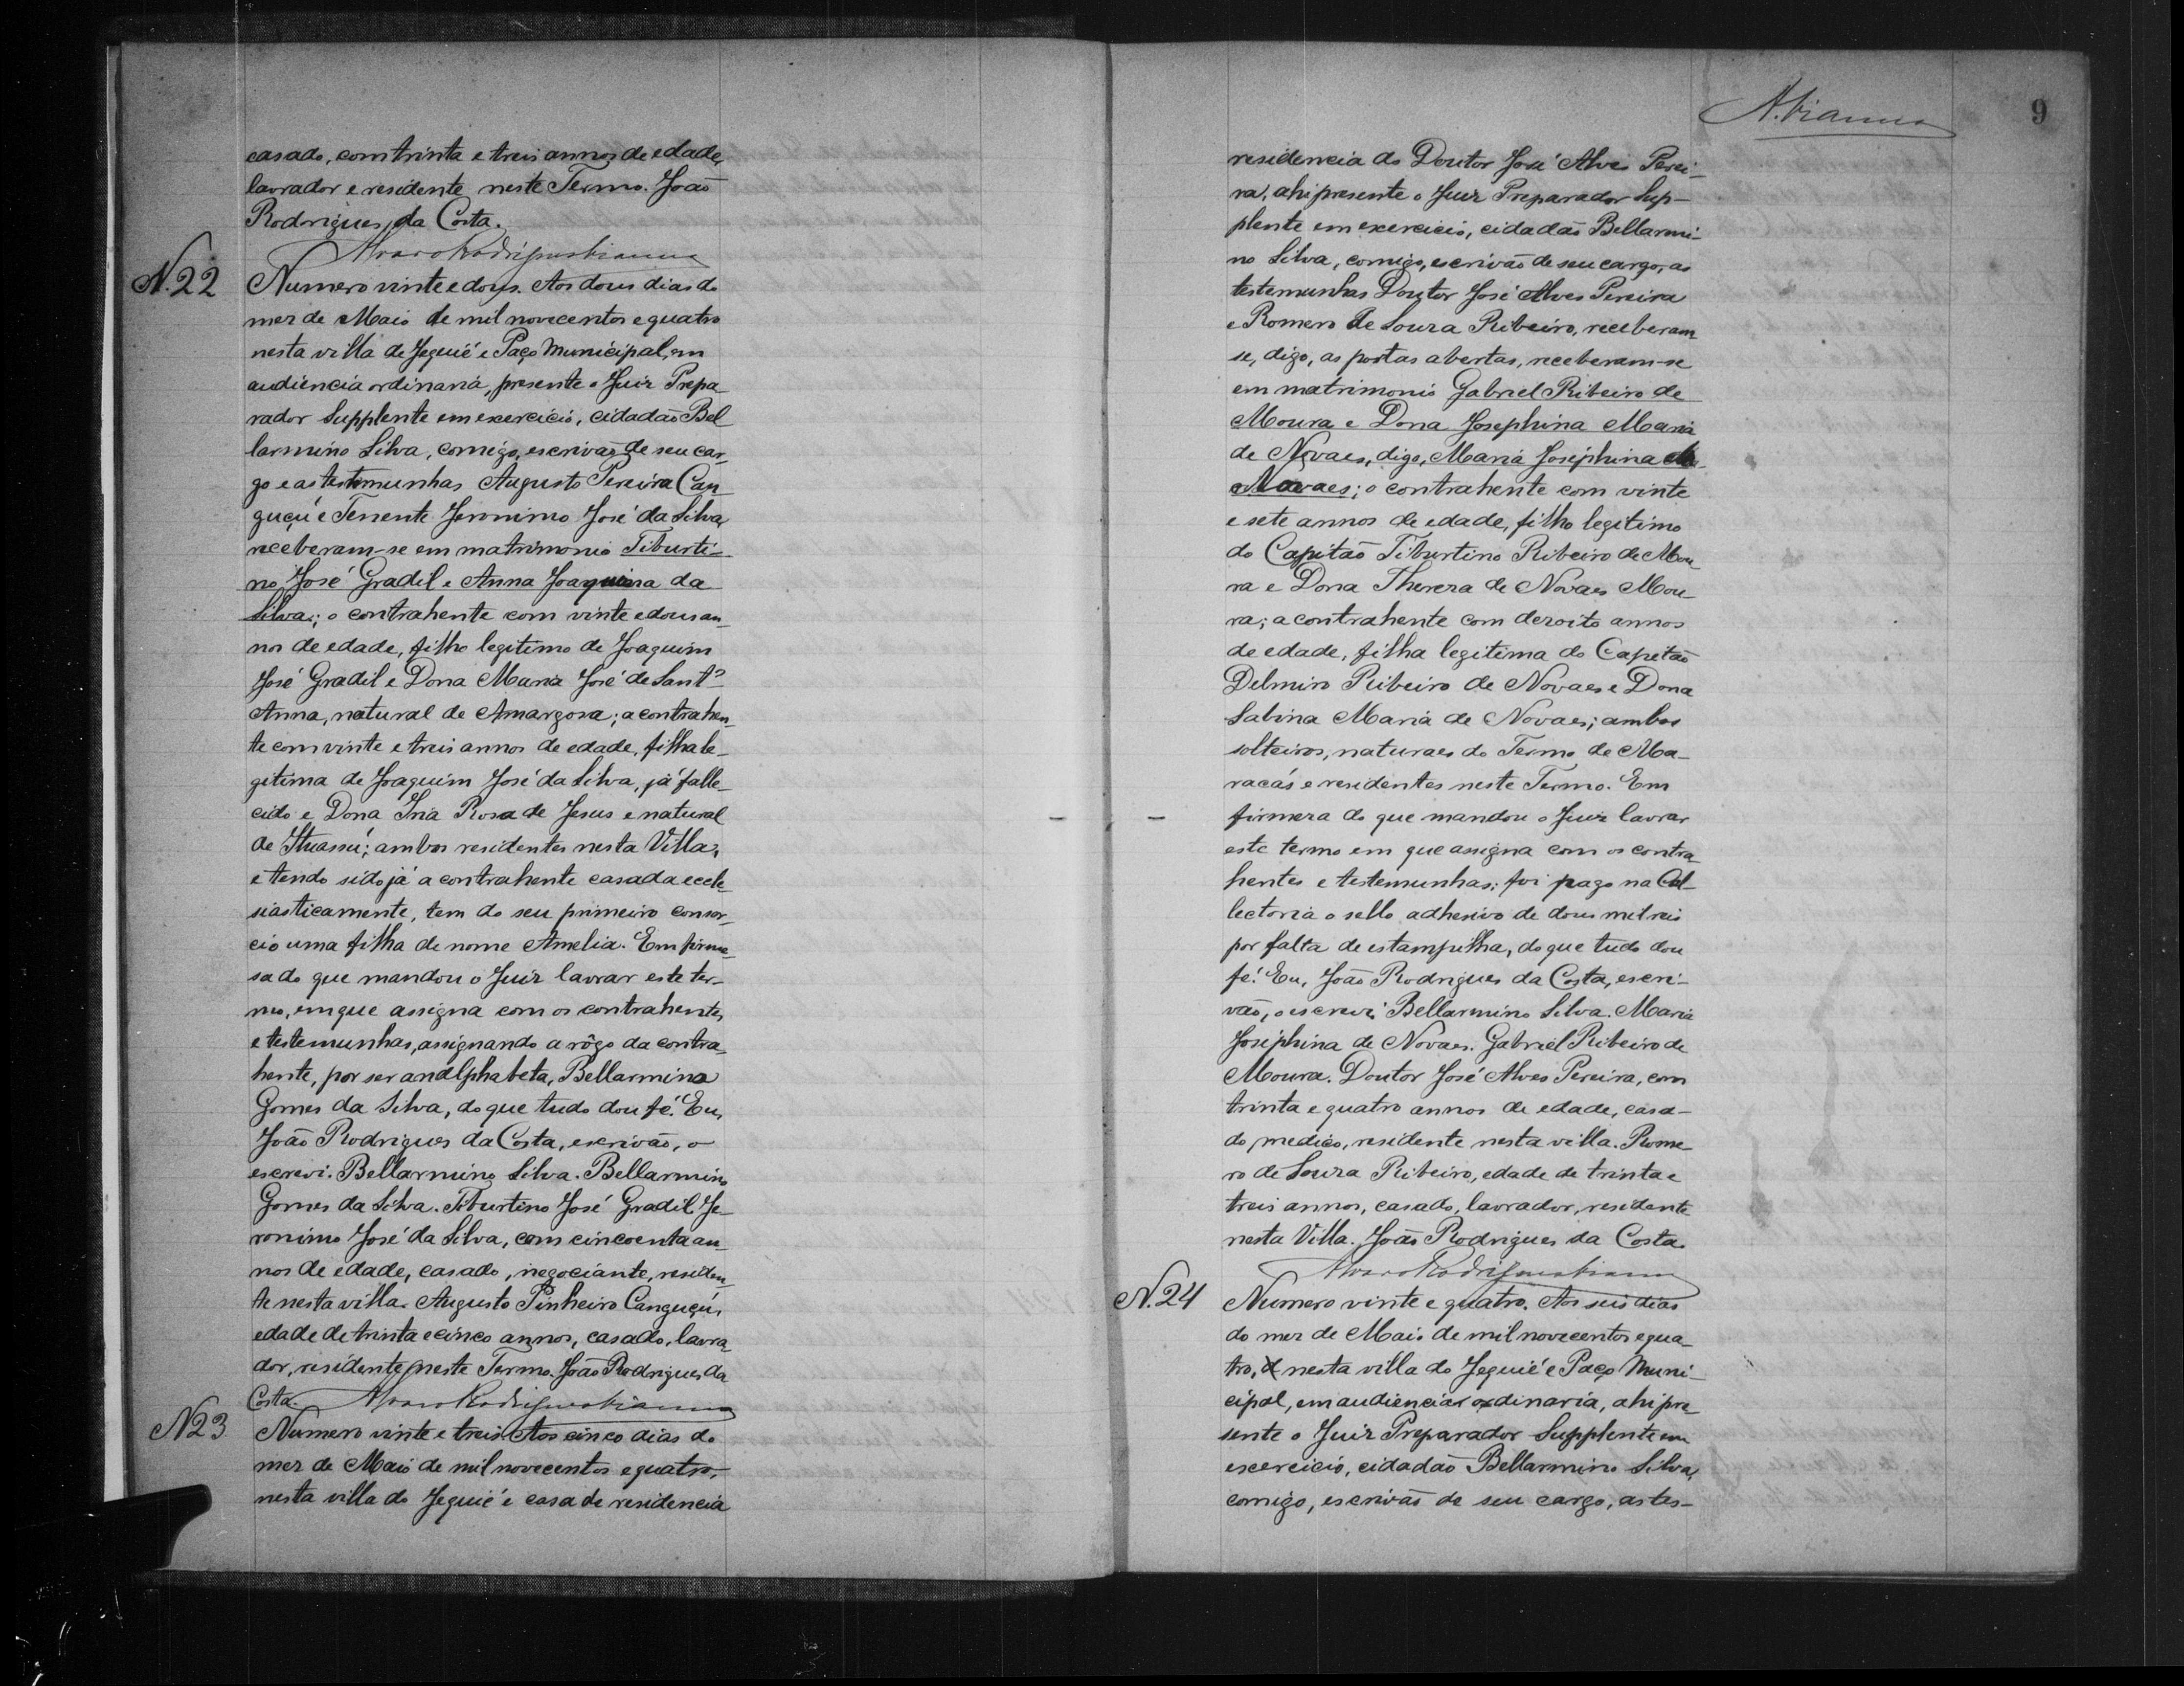 casado, com trinta e treis annos de edade,
lavrador e residente neste Termo. João
Rodrigues da Costa.
Alvaro Rodrigues Vianna
N. 22
Numero vinte e dous. Aos dous dias do
mez de Maio de mil novecentos e quatro
nesta villa de Jequié e Paço Municipal, em
audiencia ordinaria, presente o Juiz Prepa-
rador Supplente em exercicio, cidadão Bel
larmino Silva, comigo, escrivão de seu car-
go e as testemunhas Augusto Pereira Can
guçú e Tenente Jeronimo José da Silva,
receberam-se em matrimonio Tiburti-
no José Gradil e Anna Joaquina da
Silva; o contrahente com vinte e dous an-
nos de edade, filho legitimo de Joaquim
José Gradil e Dona Maria José de Santa
Anna, natural de Amargosa; a contrahen-
te com vinte e treis annos de edade, filha le-
gitima de Joaquim José da Silva, já falle-
cido e Dona Iria Rosa de Jesus e natural
de Ituassú; ambos residentes nesta Villa,
e tendo sido já a contrahente casada eccle-
siasticamente, tem do seu primeiro consor-
cio uma filha de nome Amelia. Em firme-
sa do que mandou o Juiz lavrar este ter-
mo, em que assigna com os contrahentes,
e testemunhas, assignando a rôgo da contra-
hente, por ser analphabeta, Bellarmino
Gomes da Silva, do que tudo dou fé. Eu,
João Rodrigues da Costa, escrivão, o
escrevi. Bellarmino Silva. Bellarmino
Gomes da Silva. Tiburtino José Gradil. Je-
ronimo José da Silva, com cincoenta an-
nos de edade, casado, negociante, residen-
te nesta villa. Augusto Pinheiro Canguçú,
edade de trinta e cinco annos, casado, lavra-
dor, residente neste Termo. João Rodrigues da
Costa. Alvaro Rodrigues Vianna
N 23
Numero vinte e treis. Aos cinco dias do
mez de Maio de mil novecentos e quatro,
nesta villa do Jequié e casa de residencia
A. Vianna
9
residencia do Doutor José Alves Perei-
ra, ahi presente o Juiz Preparador Sup-
plente em exercicio, cidadão Bellarmi-
no Silva, comigo, escrivão de seu cargo, as
testemunhas Doutor José Alves Pereira
e Romero de Souza Ribeiro, receberam
se, digo, as portas abertas, receberam-se
em matrimonio Gabriel Ribeiro de
Moura e Dona Josephina Maria
de Novaes, digo, Maria Josephina
Novaes; o contrahente com vinte
e sete annos de edade, filho legitimo
do Capitão Tiburtino Ribeiro de Mou-
ra e Dona Thereza de Novaes Mou-
ra; a contrahente com dezoito annos
de edade, filha legitima do Capitão
Delmiro Ribeiro de Novaes e Dona
Sabina Maria de Novaes; ambos
solteiros, naturaes do Termo de Ma-
racás e residentes neste Termo. Em
firmeza do que mandou o Juiz lavrar
este termo em que assigna com os contra-
hentes e testemunhas; foi pago na Col-
lectoria o sello adhesivo de dous mil reis
por falta de estampilha, do que tudo dou
fé. Eu, João Rodrigues da Costa, escri-
vão, o escrevi. Bellarmino Silva. Maria
Josephina de Novaes. Gabriel Ribeiro de
Moura. Doutor José Alves Pereira, com
trinta e quatro annos de edade, casa-
do, medico, residente nesta villa. Rome-
ro de Souza Ribeiro, edade de trinta e
treis annos, casado, lavrador, residente
nesta Villa. João Rodrigues da Costa.
Alvaro Rodrigues Vianna
N. 24
Numero vinte e quatro. Aos seis dias
do mez de Maio de mil novecentos e qua-
tro, nesta villa do Jequié e Paço Muni-
cipal, em audiencia ordinaria, ahi pre-
sente o Juiz Preparador Supplente em
exercicio, cidadão Bellarmino Silva,
comigo, escrivão de seu cargo, as tes-